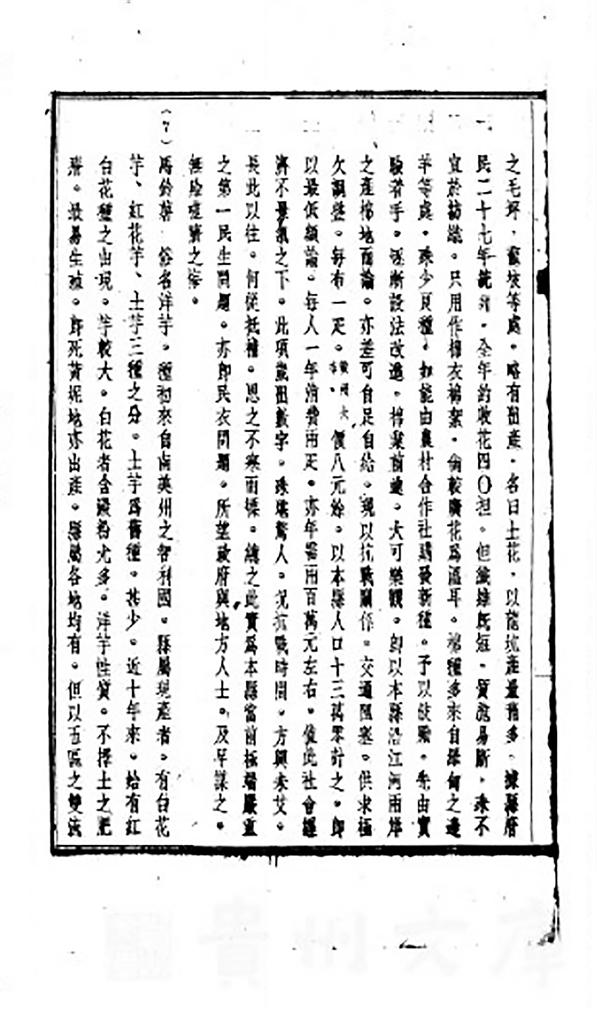 之毛坪，壩等處，略有出產，名曰土花，以龍坑產量稍多，據縣府
民二十七年統計，全年約收花四〇担，但纖維既短，質脆易斷，殊不
宜於紡織，只用作棉衣棉絮，較廣花為溫耳。棉種多來自之邊
羊等處，殊少良種，如能由農村合作社購發新種，予以鼓勵，先由實
驗着手，逐漸設法改進，棉業前途，大可樂觀。即以本縣沿江河兩岸
之產棉地而論，亦差可自足自給。現以抗戰關係，交通阻塞，供求極
欠調整，每布一疋。價八元餘，以本縣人口十三萬零計之。即
以最低額論，每人一年消費兩疋，亦年需兩百萬元左右。值此社會經
濟不景氣之下。此項歲出數字，殊堪驚人。况抗戰時間，方興未艾。
長此以往，何從抵補，思之不寒而慄，總之此實為本縣當前極端嚴重
之第一民生問題。亦即民衣問題。所望政府與地方人士。及早謀之。
無貽噬臍之悔。
（7）馬鈴薯　俗名洋芋。種初來自南美州之智利國。縣屬現產者。有白花
芋、紅花芋、土芋三種之分。土芋為舊種。甚少。近十年來。始有紅
白花種之出現。芋較大。白花者含澱粉尤多。洋芋性質。不擇土之肥
瘠。最易生殖。即死黃坭地亦出產。縣屬各地均有。但以五區之雙流
貴州文庫